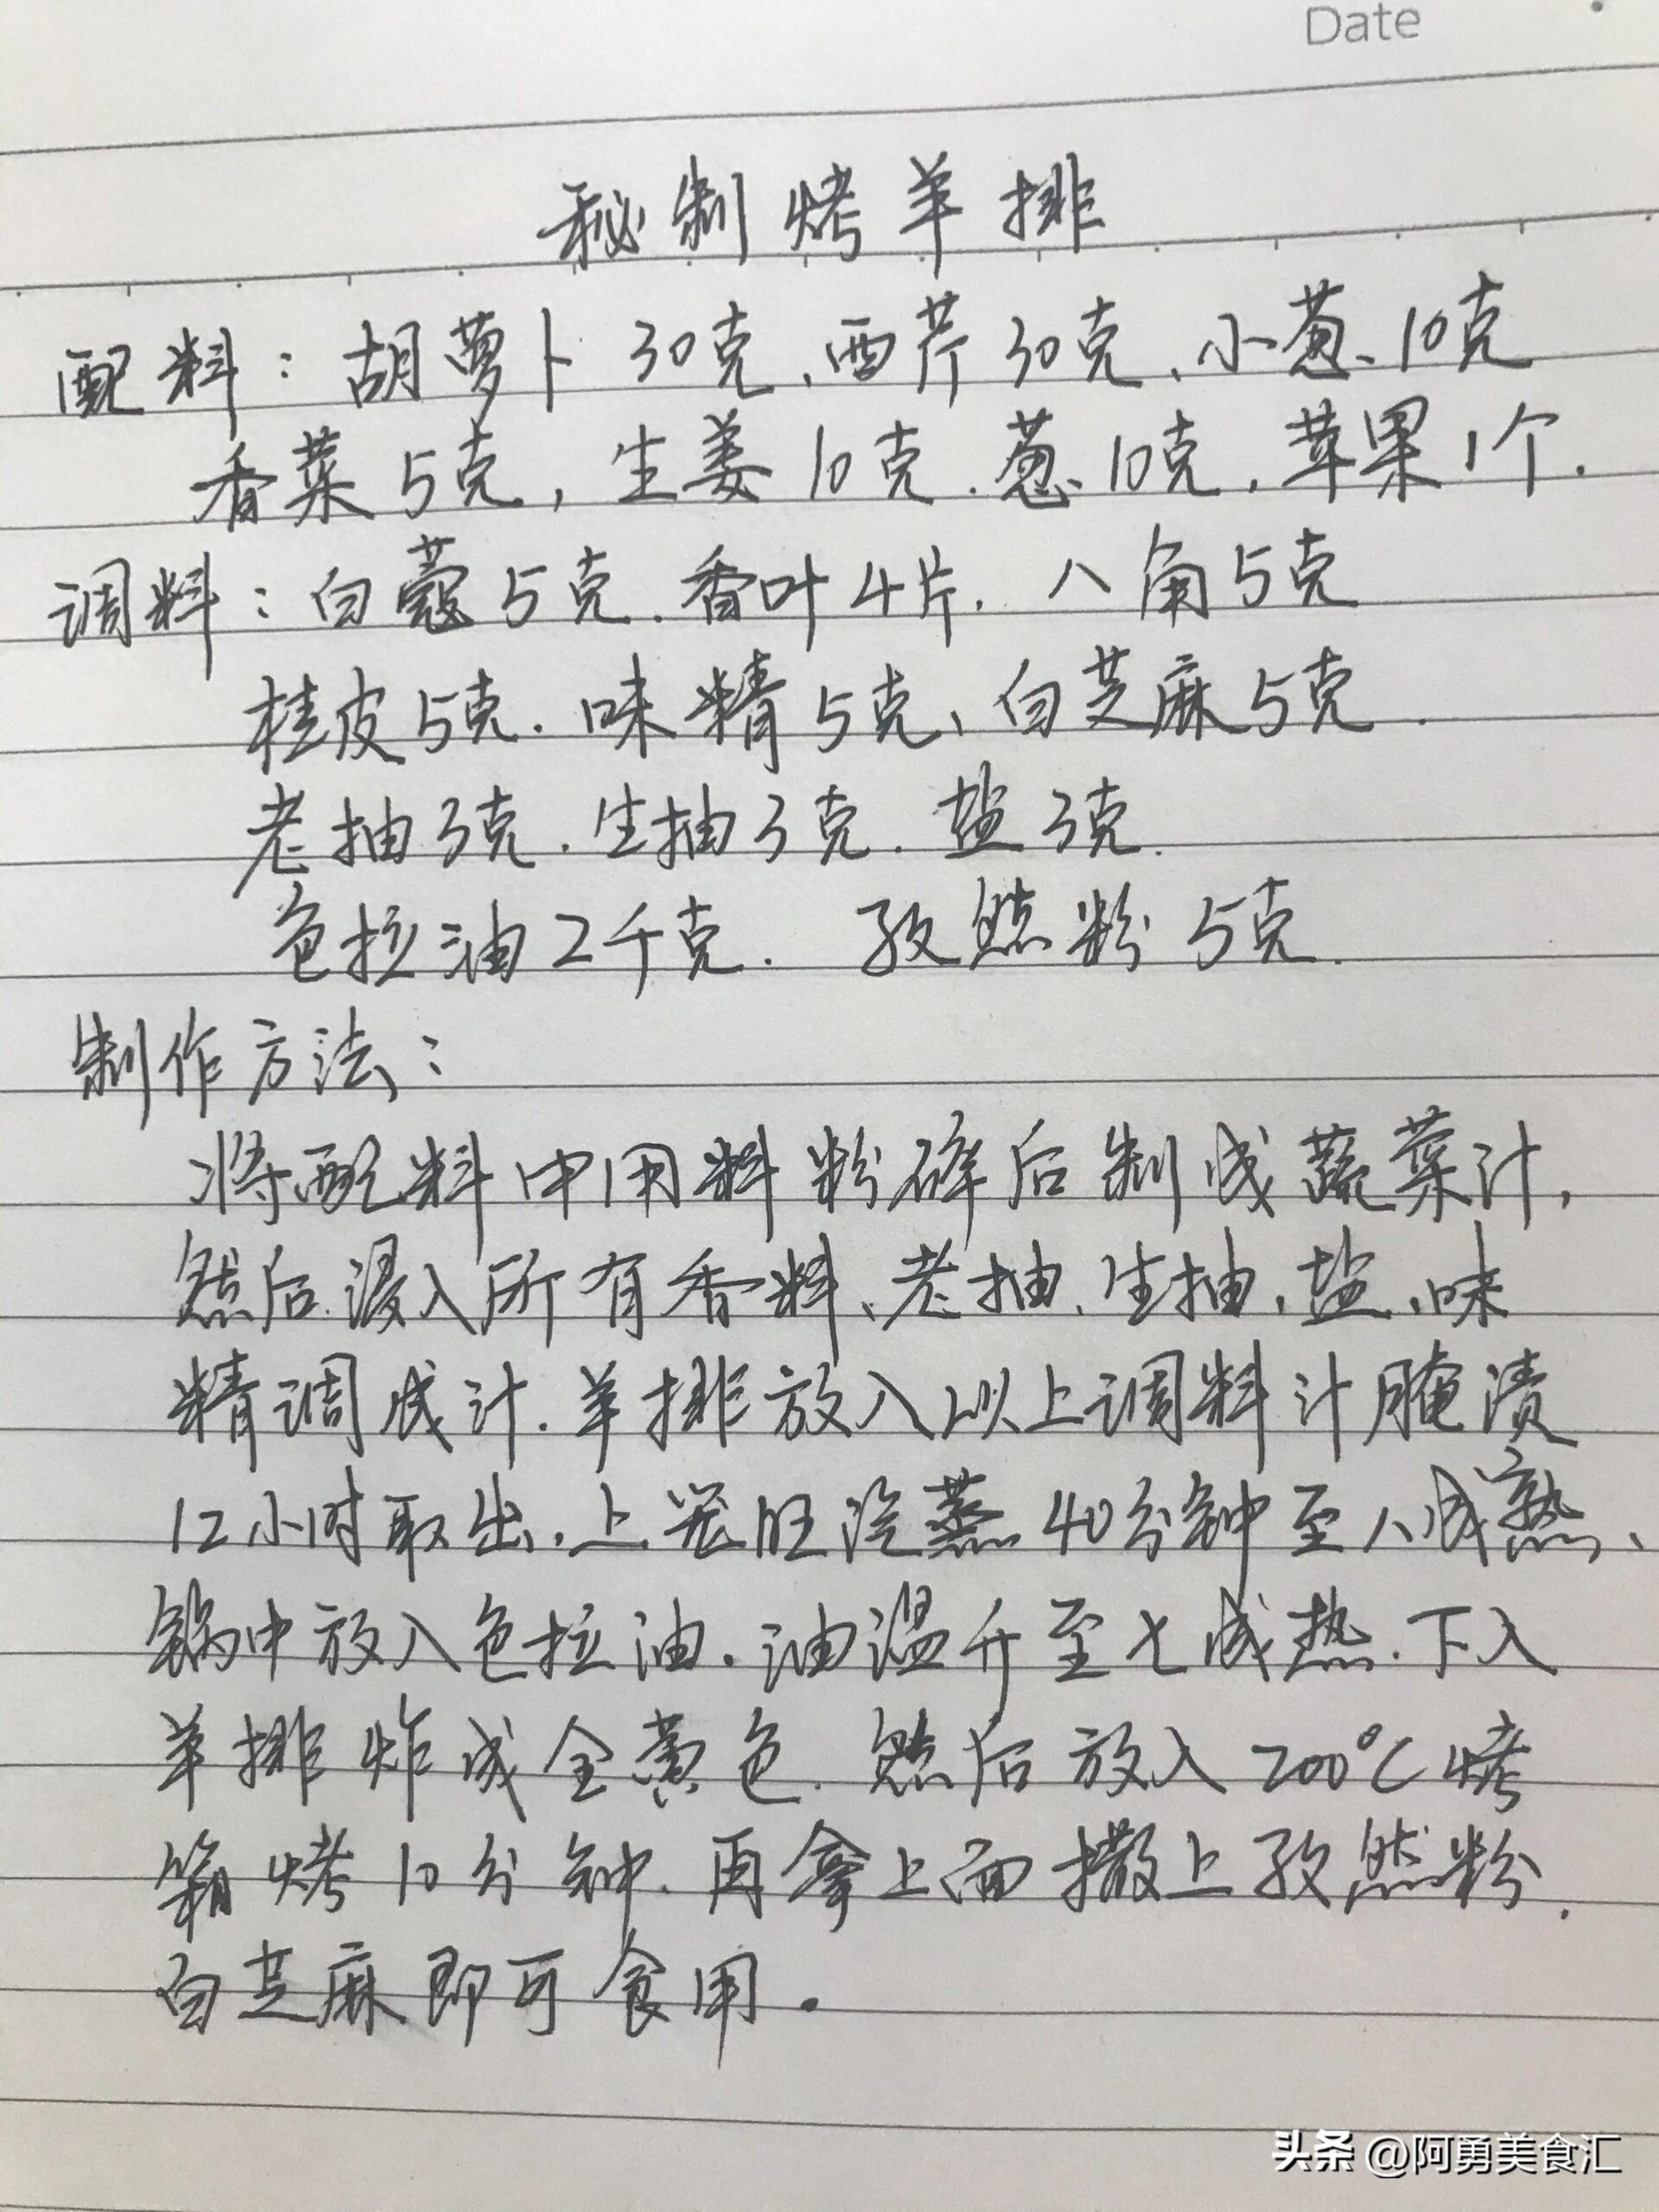 Date
秘制烤羊排
配料：胡萝卜30克、西芹30克、小葱、10克
香菜5克，生姜10克.葱10克，苹果1个.
调料：白蔻5克.香叶4片.八角5克
桂皮5克.味精5克、白芝麻5克.
老抽3克.生抽3克.盐3克.
色拉油2千克.孜然粉5克.
制作方法：
将配料中用料粉碎后制成蔬菜汁，
然后浸入所有香料、老抽、生抽，盐、味
精调成汁.羊排放入以上调料汁腌渍
12小时取出.上笼旺汽蒸40分钟至八成熟、
锅中放入色拉油.油温升至七成热.下入
羊排炸成金黄色.然后放入200℃烤
箱烤10分钟.再拿上面撒上孜然粉.
白芝麻即可食用.
头条 @阿勇美食汇